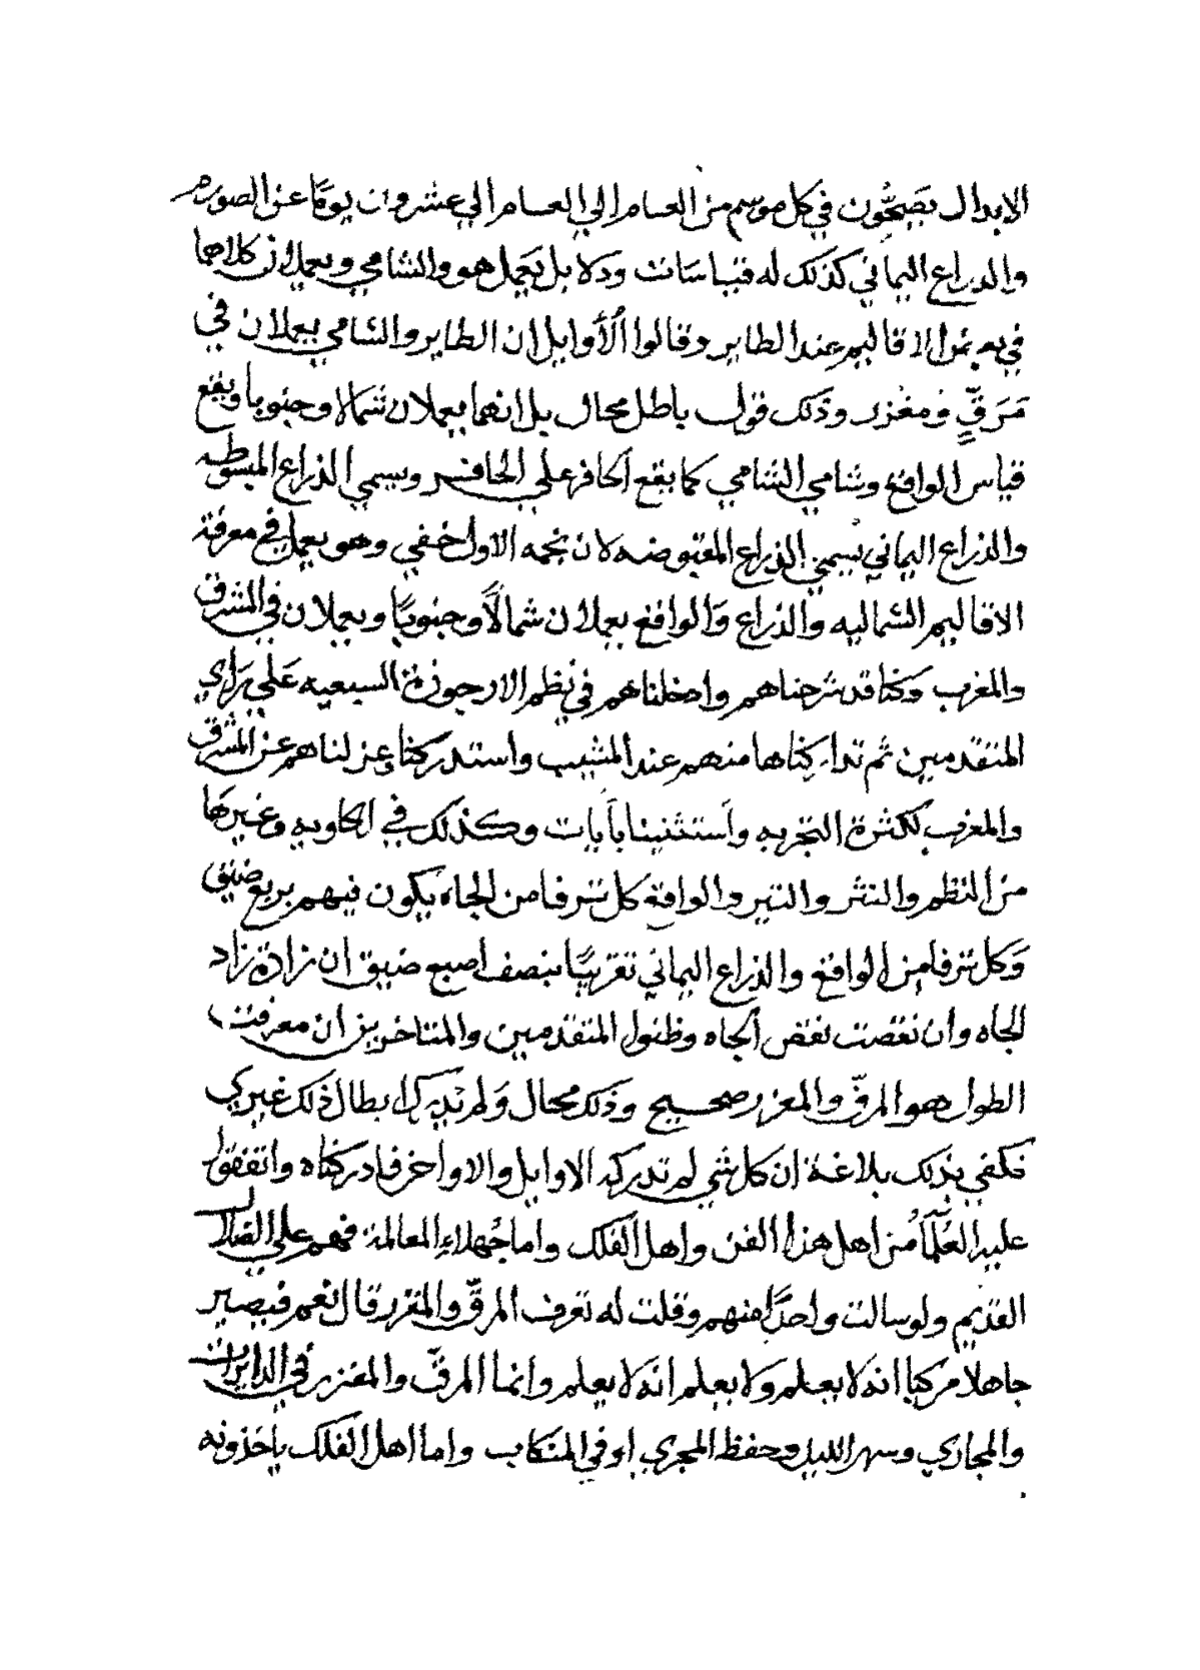 الابدال يصحّون في كل موسم من العام الي العام الي عشرون يومًا عن الصوره
والدراع اليماني كذلك له قياسات ودلايل يعمل هو والشامي ويعملان كلاهما
في الاقاليم عند الطاير وقالوا الأوايل ان الطاير والشامي يعملان في
مَرَقٍّ ومغزر وذلك قول باطل محال بل انهما يعملان شمالا وجنوبا ويقع
قياس الواقع وشامي الشامي كما يقع الحافر علي الحافر ويسمي الذراع المبسوطه
والذراع اليماني يسمي الذراع المقبوضه لان نجمه الاول خفي وهو يعمل في معرفة
الاقاليم الشماليه والذراع وَالواقع يعملان شمالًا وجنوبًا ويعملان في المشرق
والمغرب وكنا قد شرحناهم وادخلناهم في نظم الارجوزة السبعيه عَلي براي
المتقدمين ثم تداركناها منهم عند المشيب واستدركنا وعزلناهم عن المشرق
والمغرب لكثرة التجربه واستثنينا بأبيات وكذلك في الحاويه وغيرها
من النظم والنثر والتير والواقع كل ترفا من الجاه يكون فيهم بربع ضيق
وَكل ترفا من الواقع والذراع اليماني تقريبًا بنصف اصبع ضيق ان زادة زاد
الجاه وان نقصت نقص الجاه وظنوا المتقدمين والمتاخرين ان معرفت
الطول هو المرقّ والمغزر صحيح وذلك محال وَلم يدرك ابطال ذلك غيري
فكفي بذلك بلاغة ان كل شي لم تدركه الاوايل والاواخر فادركناه واتفقوا
عليه العُلمَآءُ من اهل هذا الفن واهل الفلك واما جُهلاء المعالمة فهم علي الضلال
القديم ولو سالت واحدًا منهم وقلت له تعرف المرقّ والمغزر قال نعم فيصير
جاهلا مركبا انه لا يعلم ولا يعلم انه لا يعلم وانما المرقّ والمغزر في الدايرات
والمجاري وسهر الليل وحفظ المجري او في المنكاب واما اهل الفلك ياخذونه